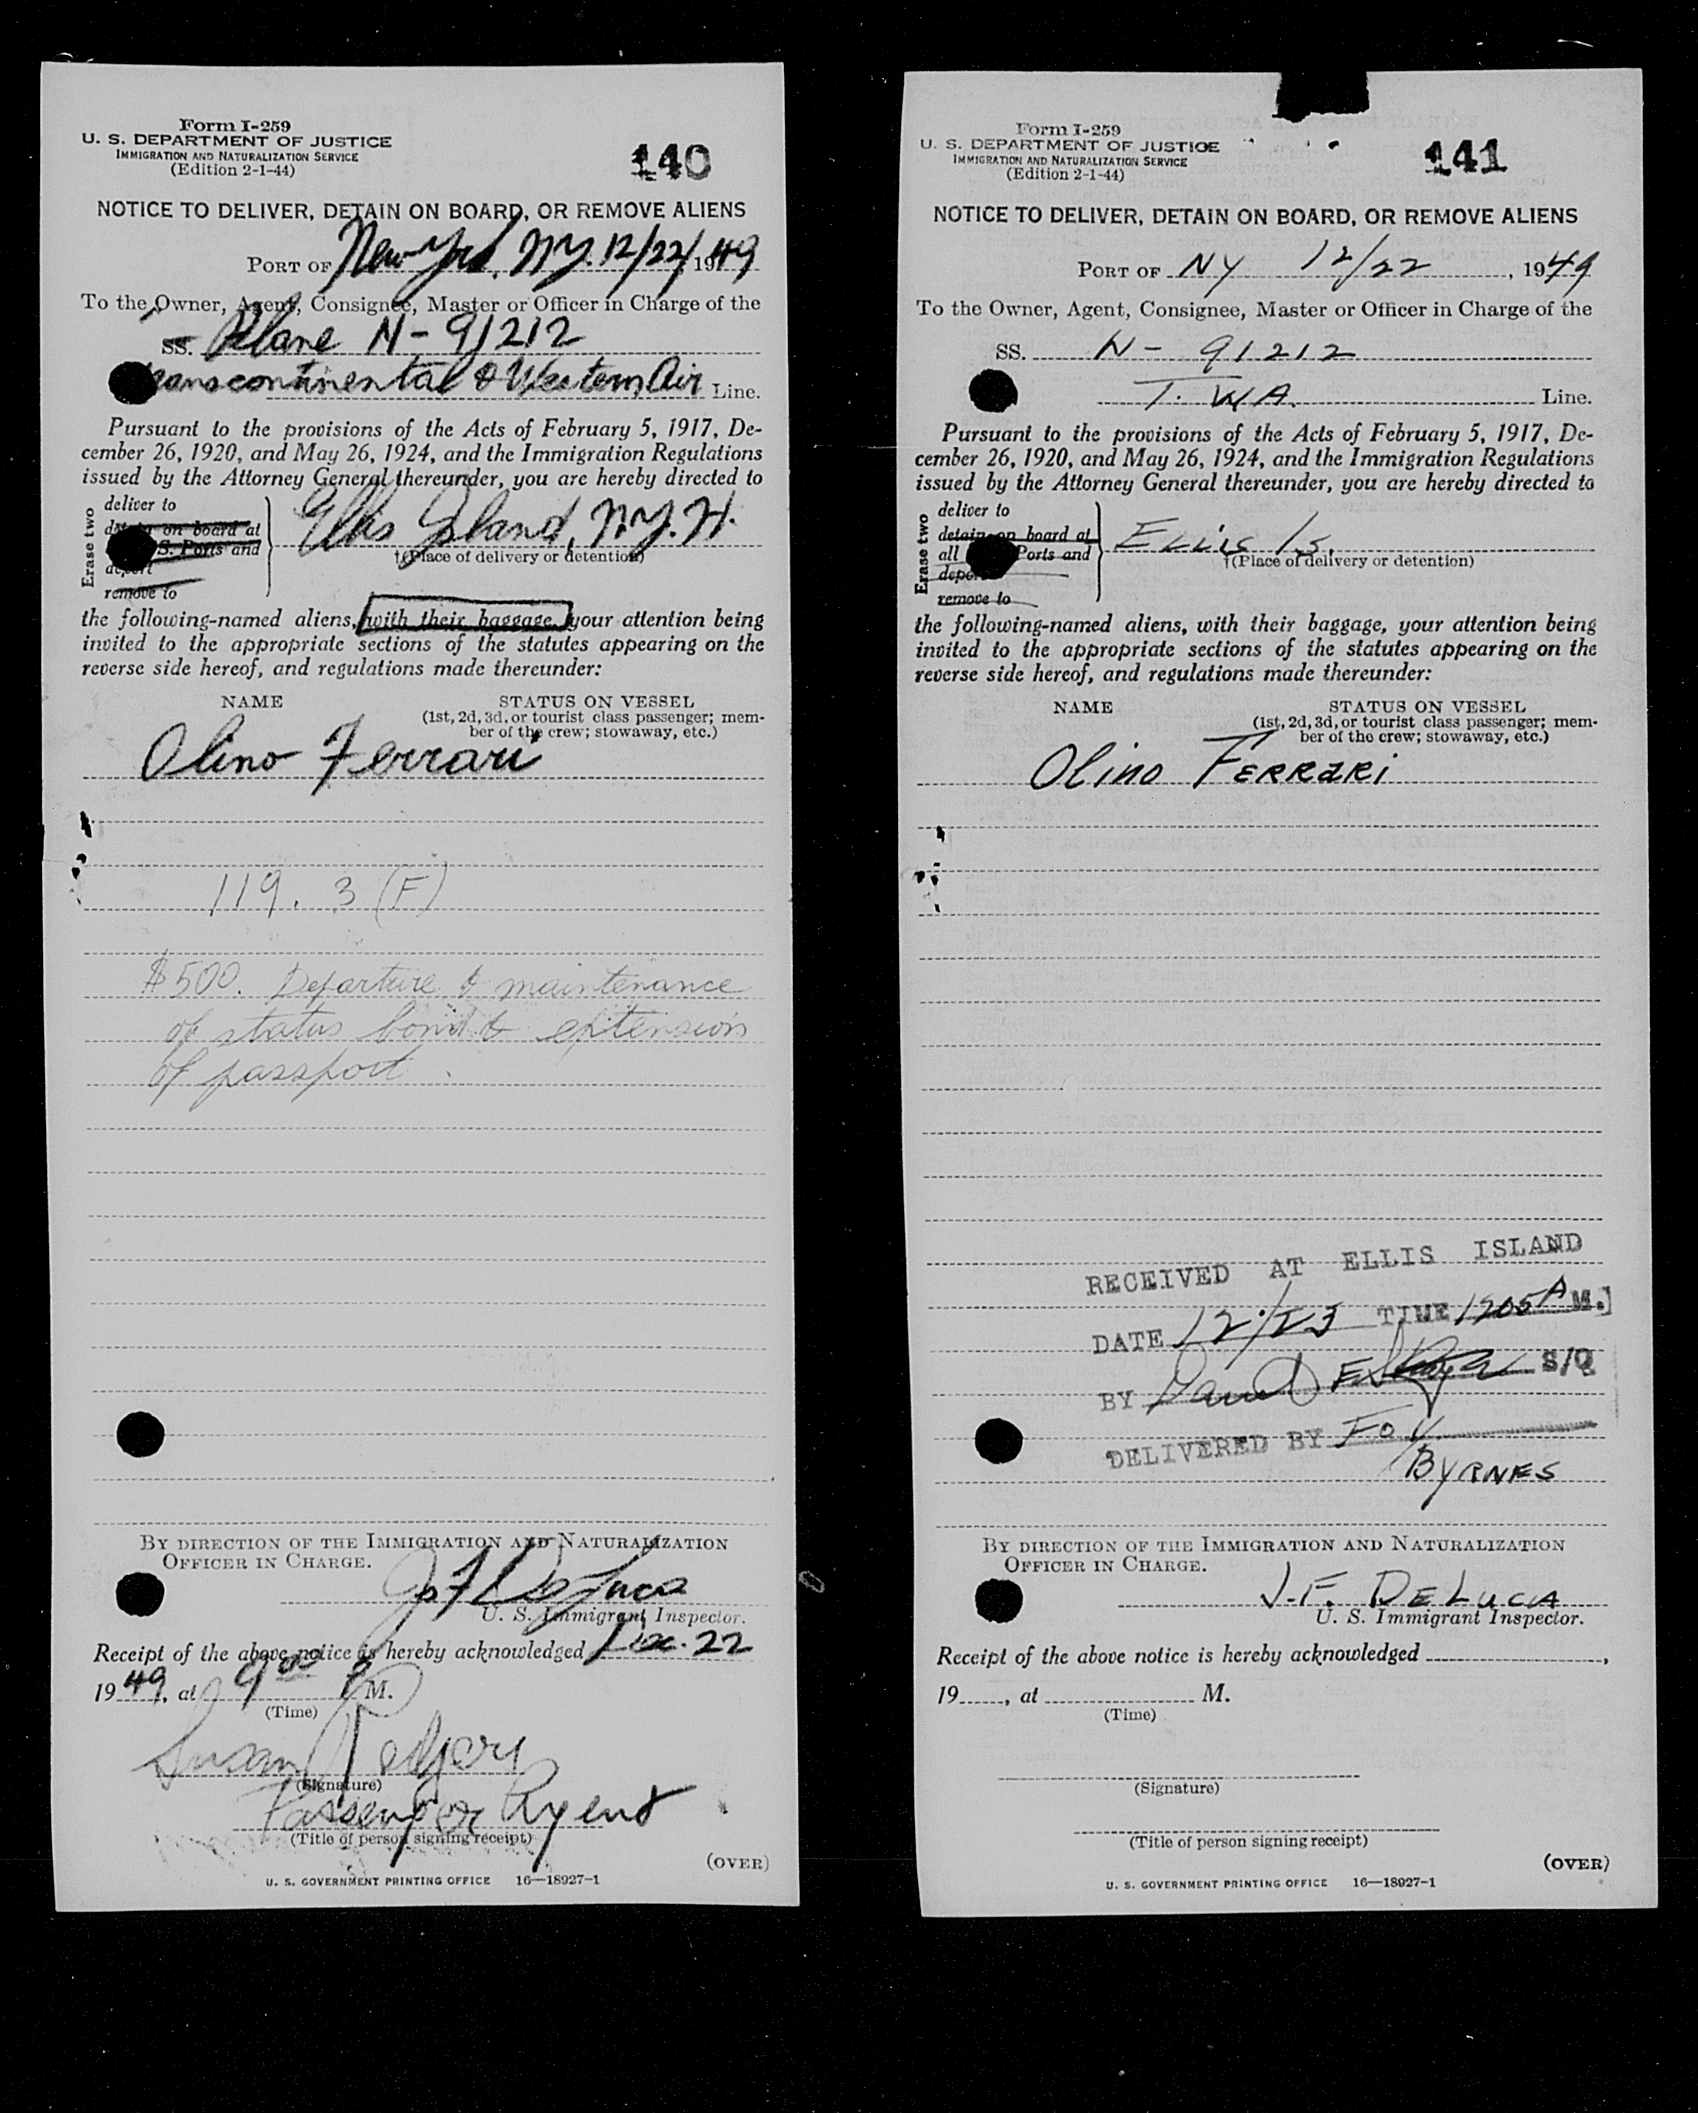 Form I-259
U. S. DEPARTMENT OF JUSTICE
IMMIGRATION AND NATURALIZATION SERVICE
(Edition 2-1-44)
140
NOTICE TO DELIVER, DETAIN ON BOARD, OR REMOVE ALIENS
PORT OF New York, N.Y. 12/22/, 1949
To the Owner, Agent, Consignee, Master or Officer in Charge of the
SS. Plane N-91212
Transcontinental & Western Air Line.
Pursuant to the provisions of the Acts of February 5, 1917, De-
cember 26, 1920, and May 26, 1924, and the Immigration Regulations
issued by the Attorney General thereunder, you are hereby directed to
Erase two
deliver to
detain on board at
S. Ports and
deport
remove to
Ellis Island, N.Y.H.
†(Place of delivery or detention)
the following-named aliens, with their baggage, your attention being
invited to the appropriate sections of the statutes appearing on the
reverse side hereof, and regulations made thereunder:
NAME STATUS ON VESSEL
(1st, 2d, 3d, or tourist class passenger; mem-
ber of the crew; stowaway, etc.)
Olino Ferrari
119. 3 (F)
$500. Departure & maintenance
of status bond & extension
of passport.
BY DIRECTION OF THE IMMIGRATION AND NATURALIZATION
OFFICER IN CHARGE.
J. F. DeLuca
U. S. Immigrant Inspector.
Receipt of the above notice is hereby acknowledged Dec. 22
1949, at 9 00 P M.
(Time)
Susan
(Signature)
Passenger Agent
(Title of person signing receipt)
(OVER)
U. S. GOVERNMENT PRINTING OFFICE 16—18927-1
Form I-259
U. S. DEPARTMENT OF JUSTICE
IMMIGRATION AND NATURALIZATION SERVICE
(Edition 2-1-44)
141
NOTICE TO DELIVER, DETAIN ON BOARD, OR REMOVE ALIENS
PORT OF NY 12/22, 1949
To the Owner, Agent, Consignee, Master or Officer in Charge of the
SS. N- 91212
T. W A. Line.
Pursuant to the provisions of the Acts of February 5, 1917, De-
cember 26, 1920, and May 26, 1924, and the Immigration Regulations
issued by the Attorney General thereunder, you are hereby directed to
Erase two
deliver to
detain on board at
all Ports and
deport
remove to
ELLIS IS.
†(Place of delivery or detention)
the following-named aliens, with their baggage, your attention being
invited to the appropriate sections of the statutes appearing on the
reverse side hereof, and regulations made thereunder:
NAME STATUS ON VESSEL
(1st, 2d, 3d, or tourist class passenger; mem-
ber of the crew; stowaway, etc.)
Olino FERRARI
RECEIVED AT ELLIS ISLAND
DATE 12/23 TIME 1205 A M.
BY David E S/Q
DELIVERED BY Foy
BYRNES
BY DIRECTION OF THE IMMIGRATION AND NATURALIZATION
OFFICER IN CHARGE.
J. F. DELUCA
U. S. Immigrant Inspector.
Receipt of the above notice is hereby acknowledged ,
19 , at M.
(Time)
(Signature)
(Title of person signing receipt)
(OVER)
U. S. GOVERNMENT PRINTING OFFICE 16—18927-1